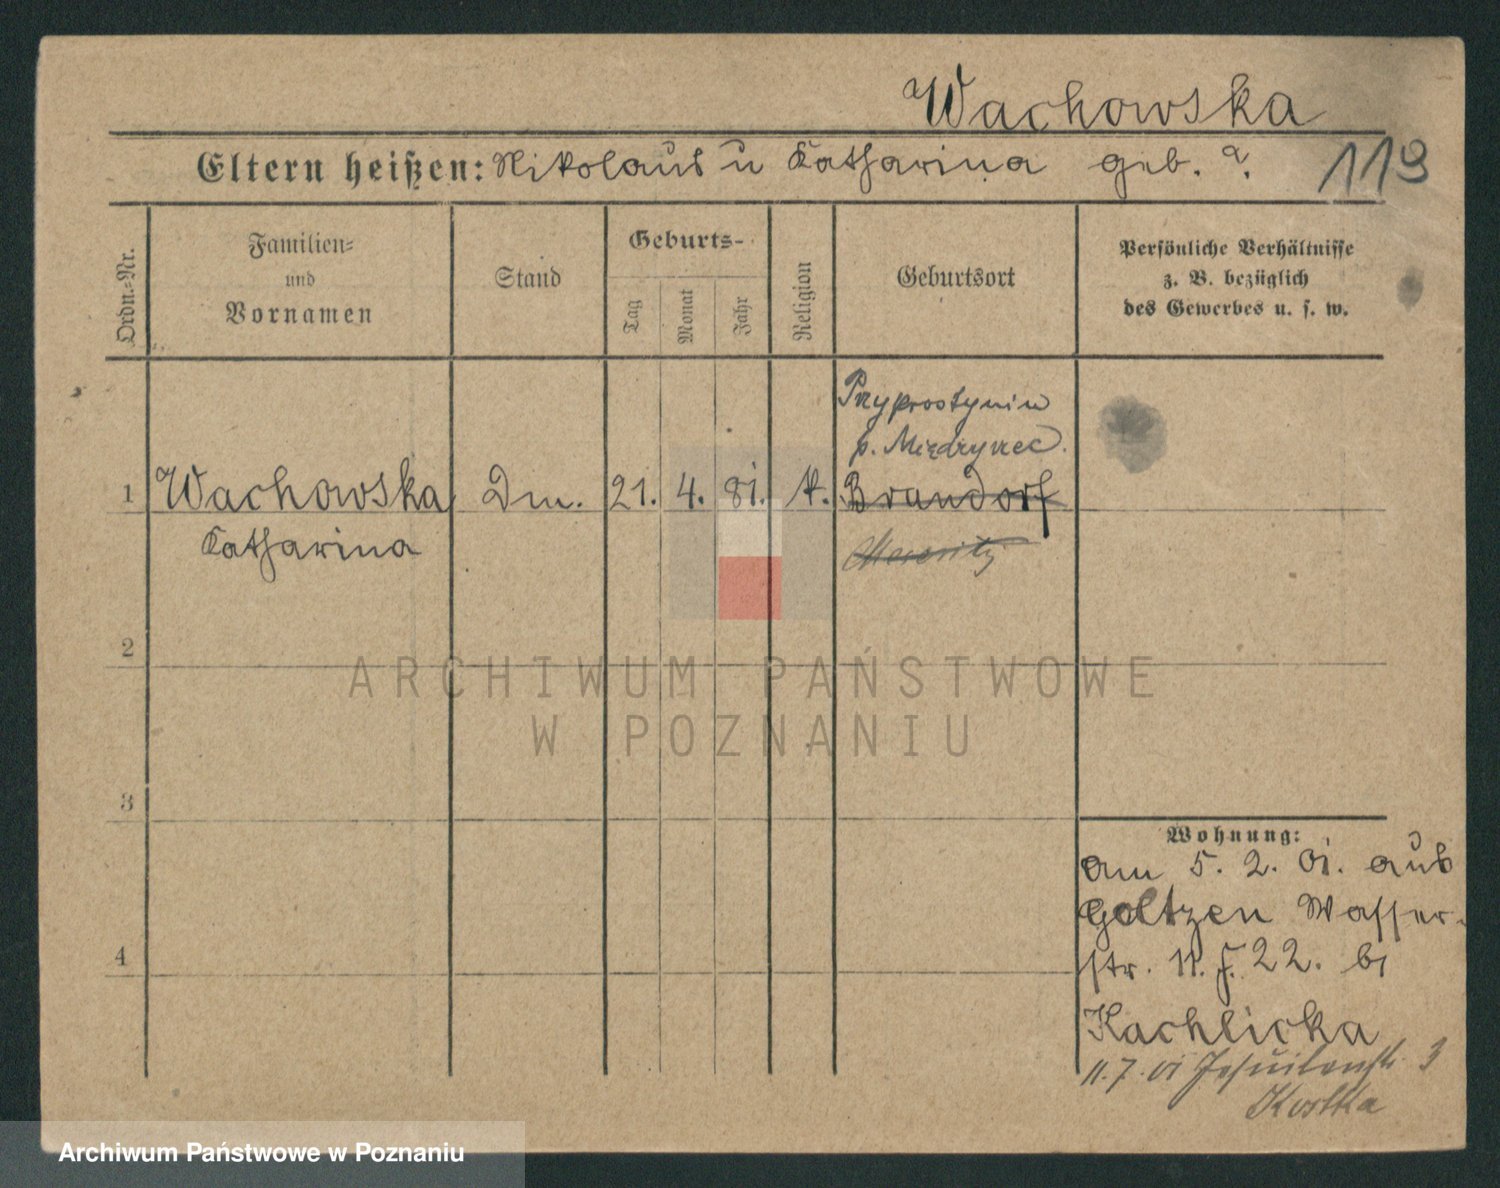 Wachowska
Eltern heißen: Nikolaus u Katharina geb. ?.
119
Ordn.-Nr.
Familien-
und
Vornamen
Stand
Geburts-
Tag
Monat
Jahr
Religion
Geburtsort
Persönliche Verhältnisse
z. B. bezüglich
des Gewerbes u. s. w.
Przyprostynia
p. Międzyrzec.
1 Wachowska Dm. 21. 4. 81. k. Brandorf
Katharina Meseritz
2
3
4
Wohnung:
am 5. 2. 01. aus
Goltzen Wasser-
str. 11. J. 22. bi
Kachlicka
11. 7. 01 Jesuitenstr. 3
Kostka
ARCHIWUM PAŃSTWOWE
W POZNANIU
Archiwum Państwowe w Poznaniu